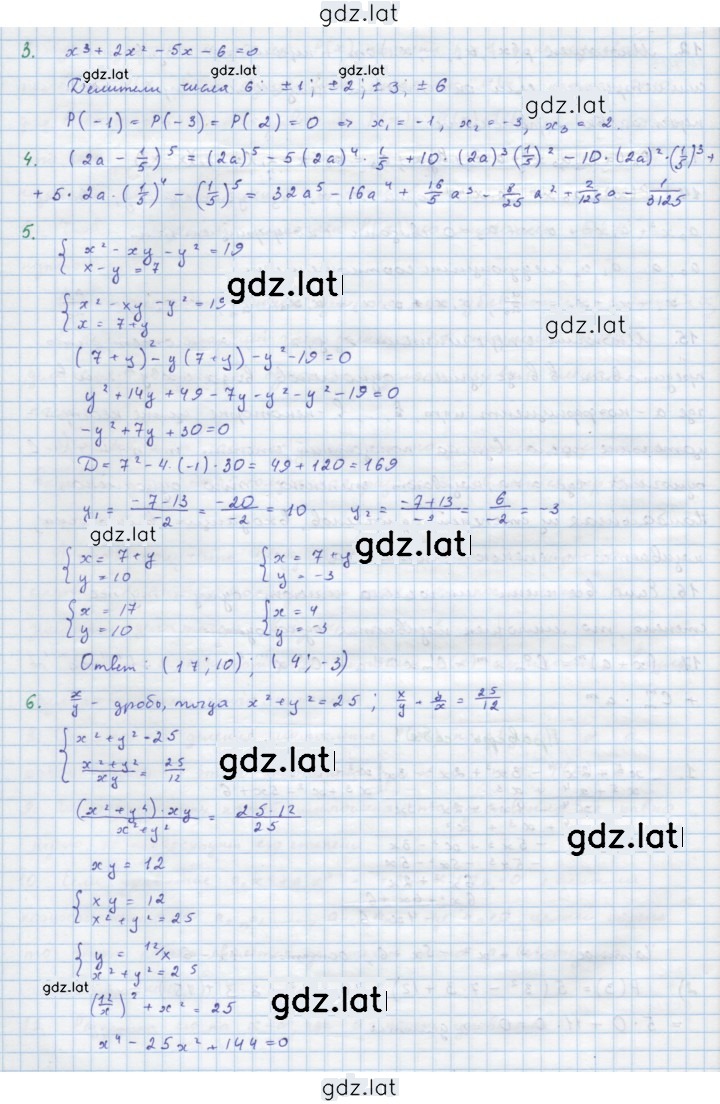 gdz.lat
3. x³ + 2x² - 5x - 6 = 0
gdz.lat gdz.lat
Делители числа 6: ±1; ±2; ±3; ±6
gdz.lat
P(-1) = P(-3) = P(2) = 0 => x₁ = -1, x₂ = -3, x₃ = 2.
4. (2a - 1/5)⁵ = (2a)⁵ - 5(2a)⁴ · 1/5 + 10 · (2a)³(1/5)² - 10 · (2a)² · (1/5)³ +
+ 5 · 2a · (1/5)⁴ - (1/5)⁵ = 32a⁵ - 16a⁴ + 16/5 a³ - 8/25 a² + 2/125 a - 1/3125
5.
{ x² - xy - y² = 19
x - y = 7
gdz.lat
{ x² - xy - y² = 19
x = 7 + y
gdz.lat
(7 + y)² - y(7 + y) - y² - 19 = 0
y² + 14y + 49 - 7y - y² - y² - 19 = 0
-y² + 7y + 30 = 0
D = 7² - 4 · (-1) · 30 = 49 + 120 = 169
y₁ = (-7-13)/-2 = -20/-2 = 10 y₂ = (-7+13)/-2 = 6/-2 = -3
gdz.lat gdz.lat
{ x = 7 + y { x = 7 + y
y = 10 y = -3
{ x = 17 { x = 4
y = 10 y = -3
Ответ: (17; 10); (4; -3)
6. x/y - дробь, тогда x² + y² = 25; x/y + y/x = 25/12
{ x² + y² = 25
(x² + y²)/xy = 25/12
gdz.lat
(x² + y²) · xy / x² + y² = 25 · 12 / 25
gdz.lat
xy = 12
{ xy = 12
x² + y² = 25
{ y = 12/x
x² + y² = 25
gdz.lat gdz.lat
(12/x)² + x² = 25
x⁴ - 25x² + 144 = 0
gdz.lat